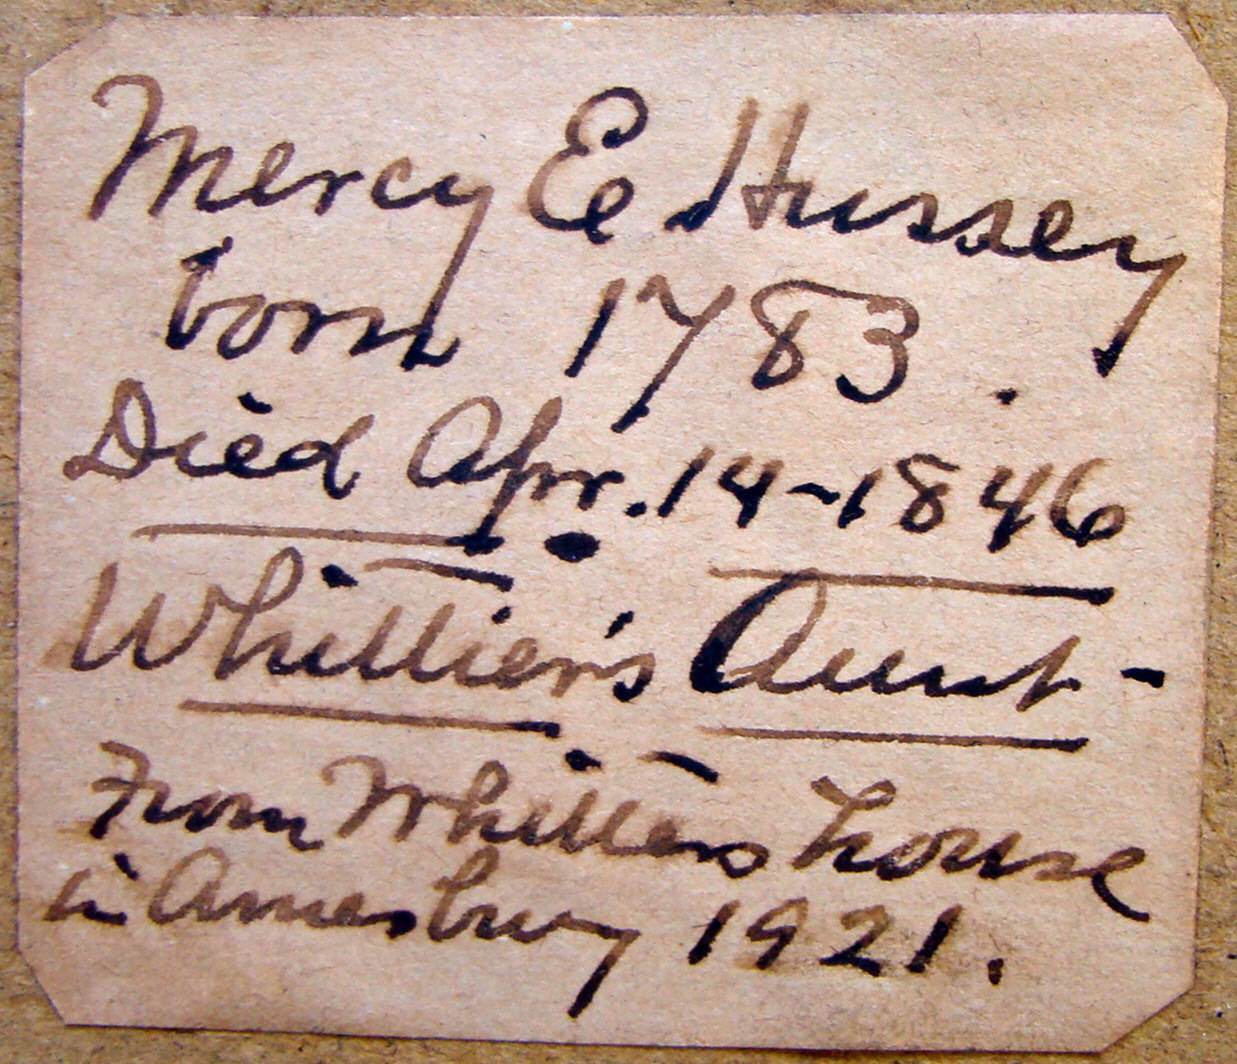 Mercy E Hussey
born 1783.
Died Apr. 14-1846
Whittier's Aunt-
From Whittiers house
in Amesbury 1921.